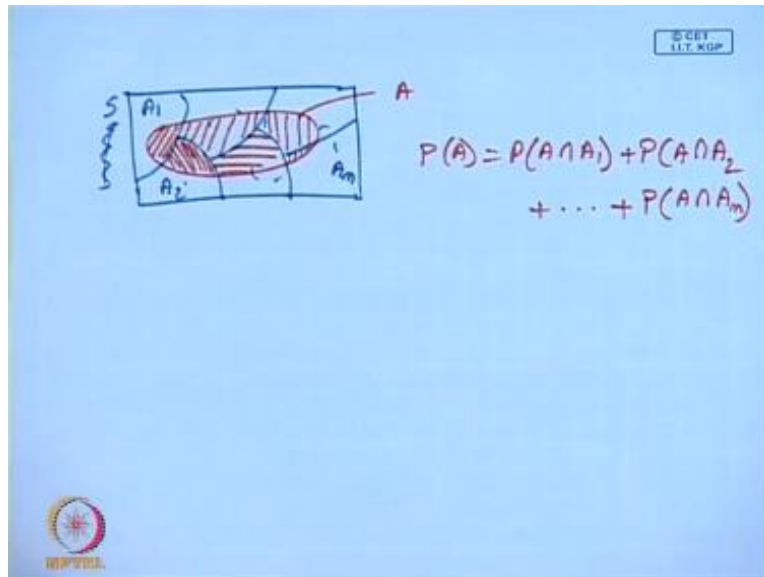 © CET
I.I.T. KGP
S A1
A
A2
An
P(A) = P(A∩A1) + P(A∩A2
+ ... + P(A∩An)
NPTEL